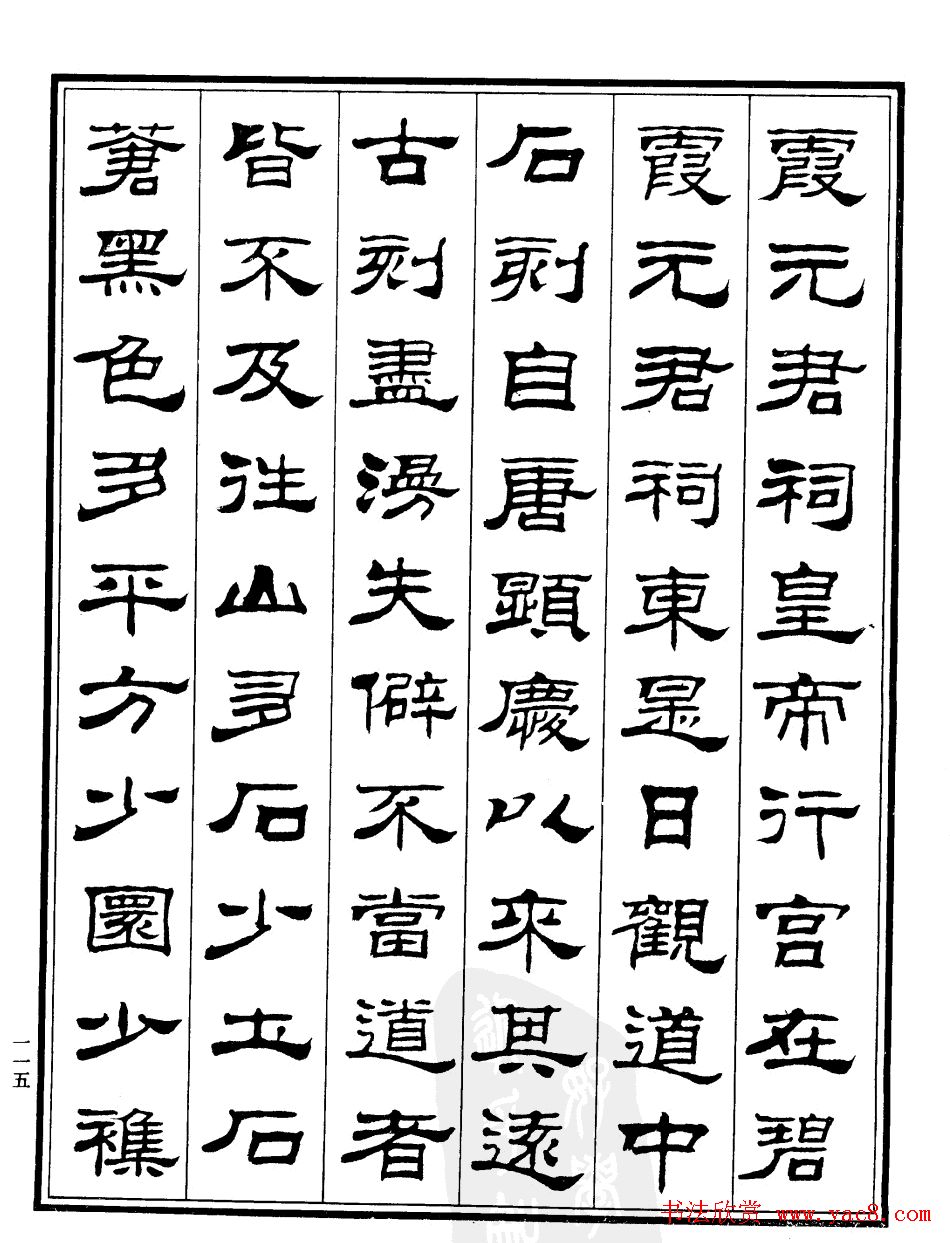 霞元君祠皇帝行宮在碧
霞元君祠東是日觀道中
石刻自唐顯慶以來其遠
古刻盡漫失僻不當道者
皆不及往山多石少土石
蒼黑色多平方少圜少襍
一一五
书法欣赏 www.yac8.com